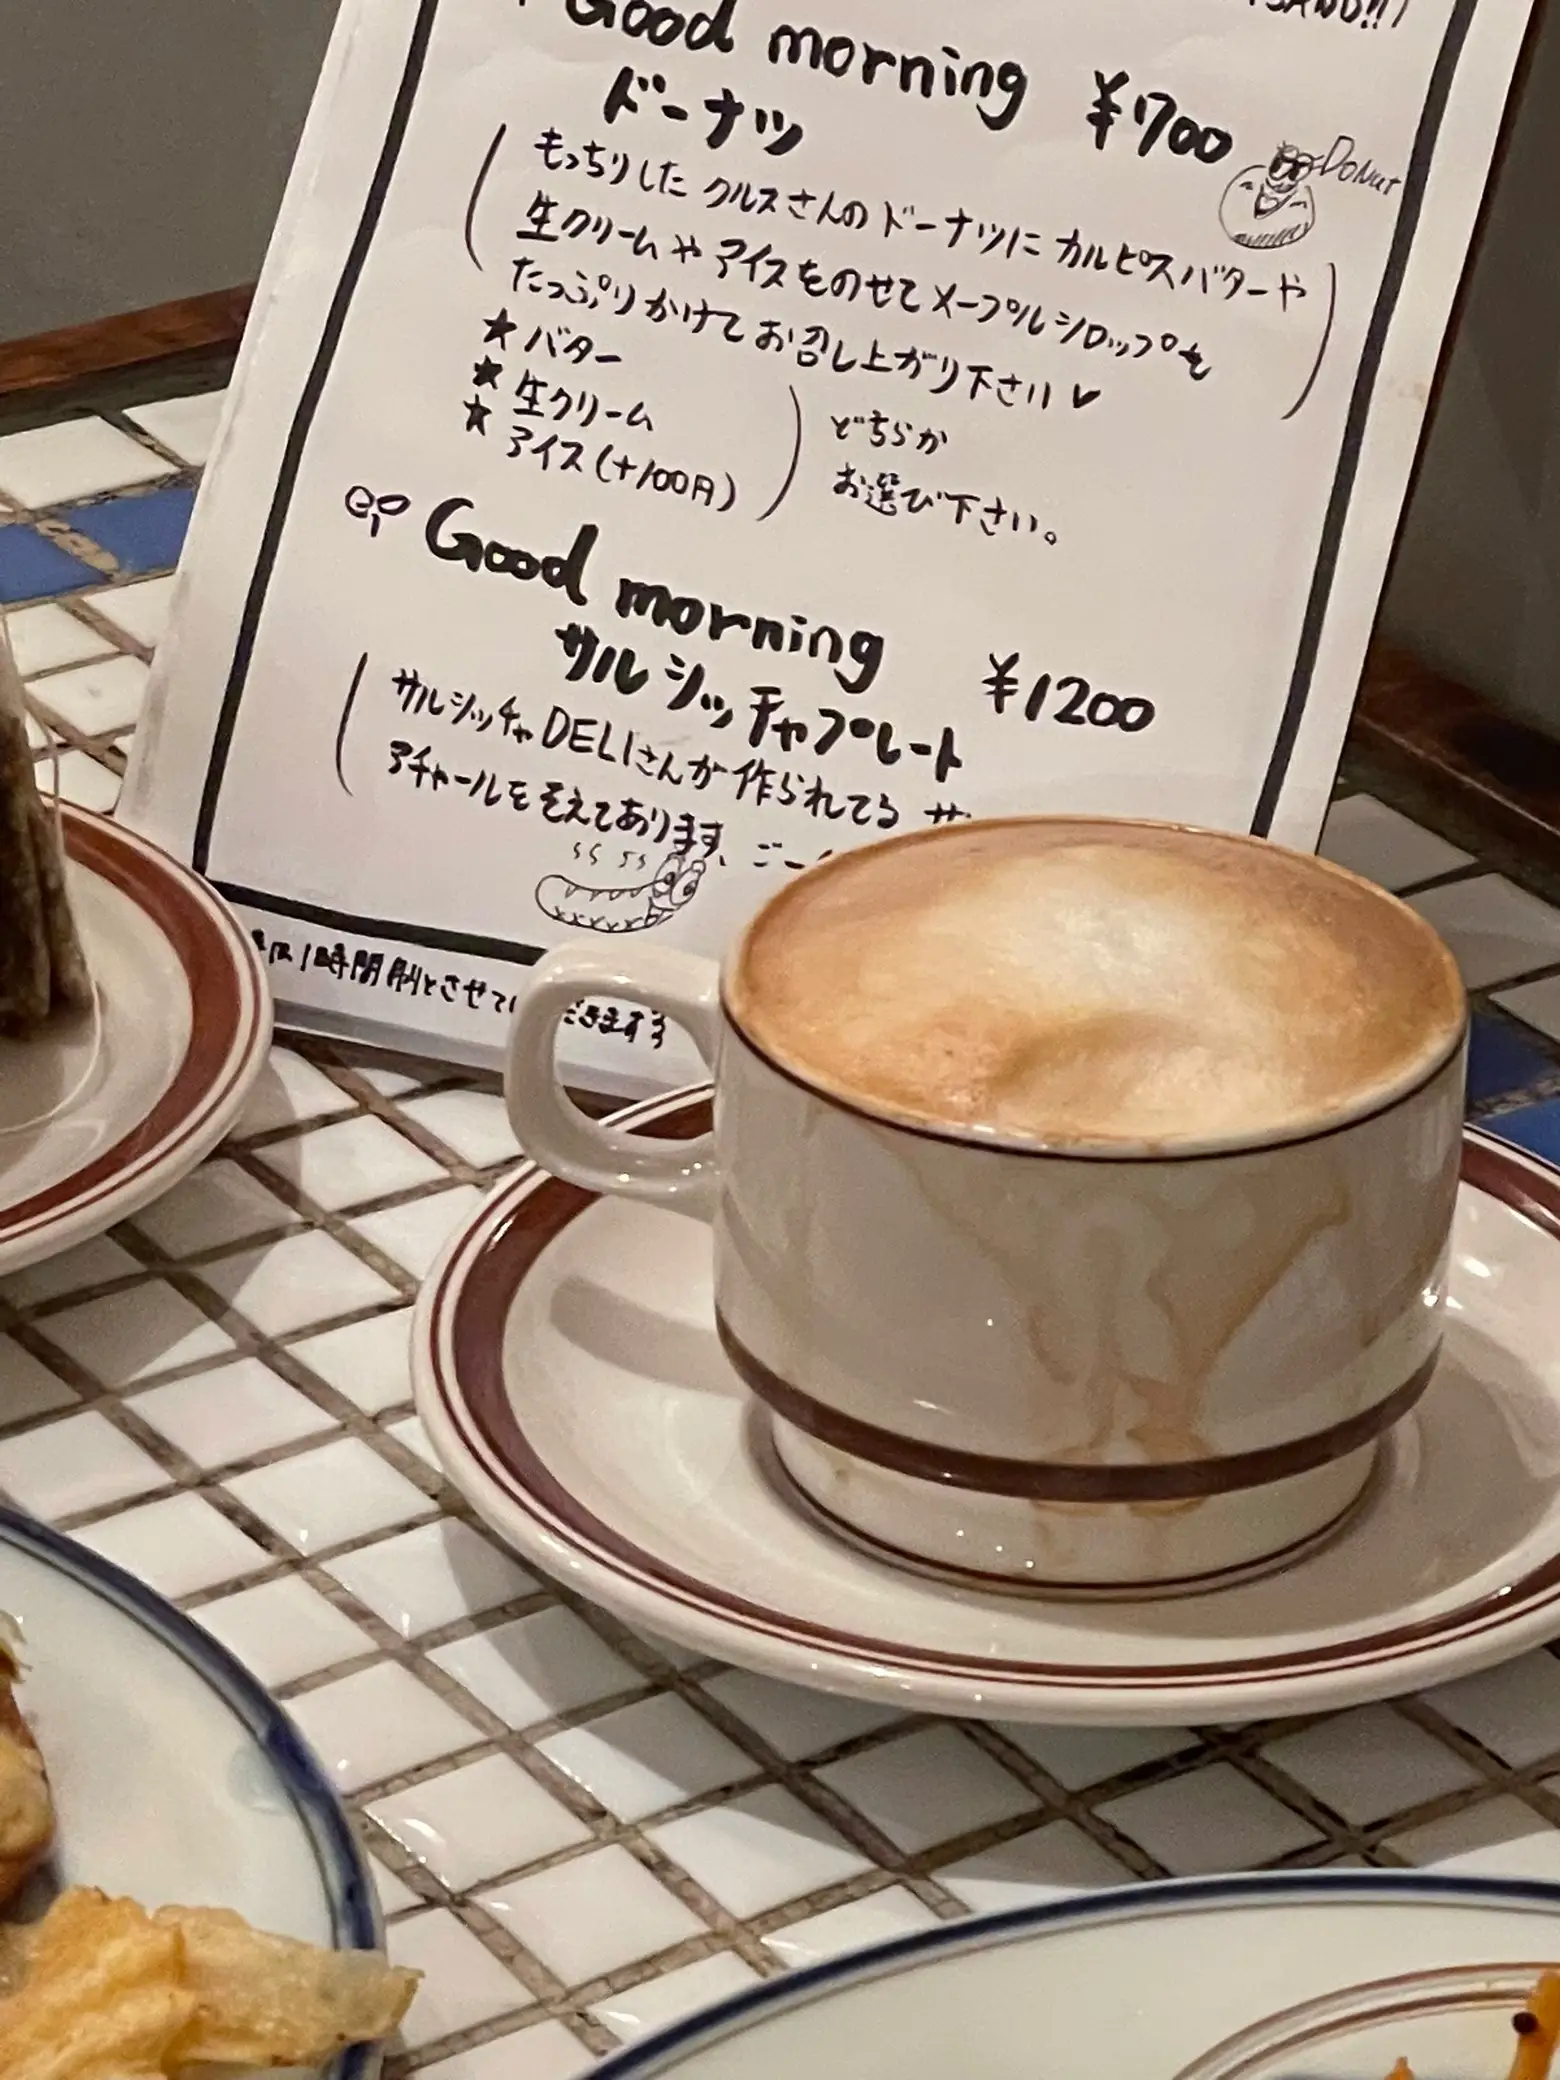 SAND!!)
Good morning ¥700
ドーナツ
DONUT
もっちりした クルスさんの ドーナツに カルピスバターや
生クリームや アイスをのせて メープルシロップを
たっぷりかけて お召し上がり下さい
★ バター
★ 生クリーム
★ アイス(+100円)
どちらか
お選び下さい。
Good morning ¥1200
サルシッチャプレート
サルシッチャDELIさんが 作られてる サ
アチャールをそえてあります、ごー
1時間制とさせて
きます